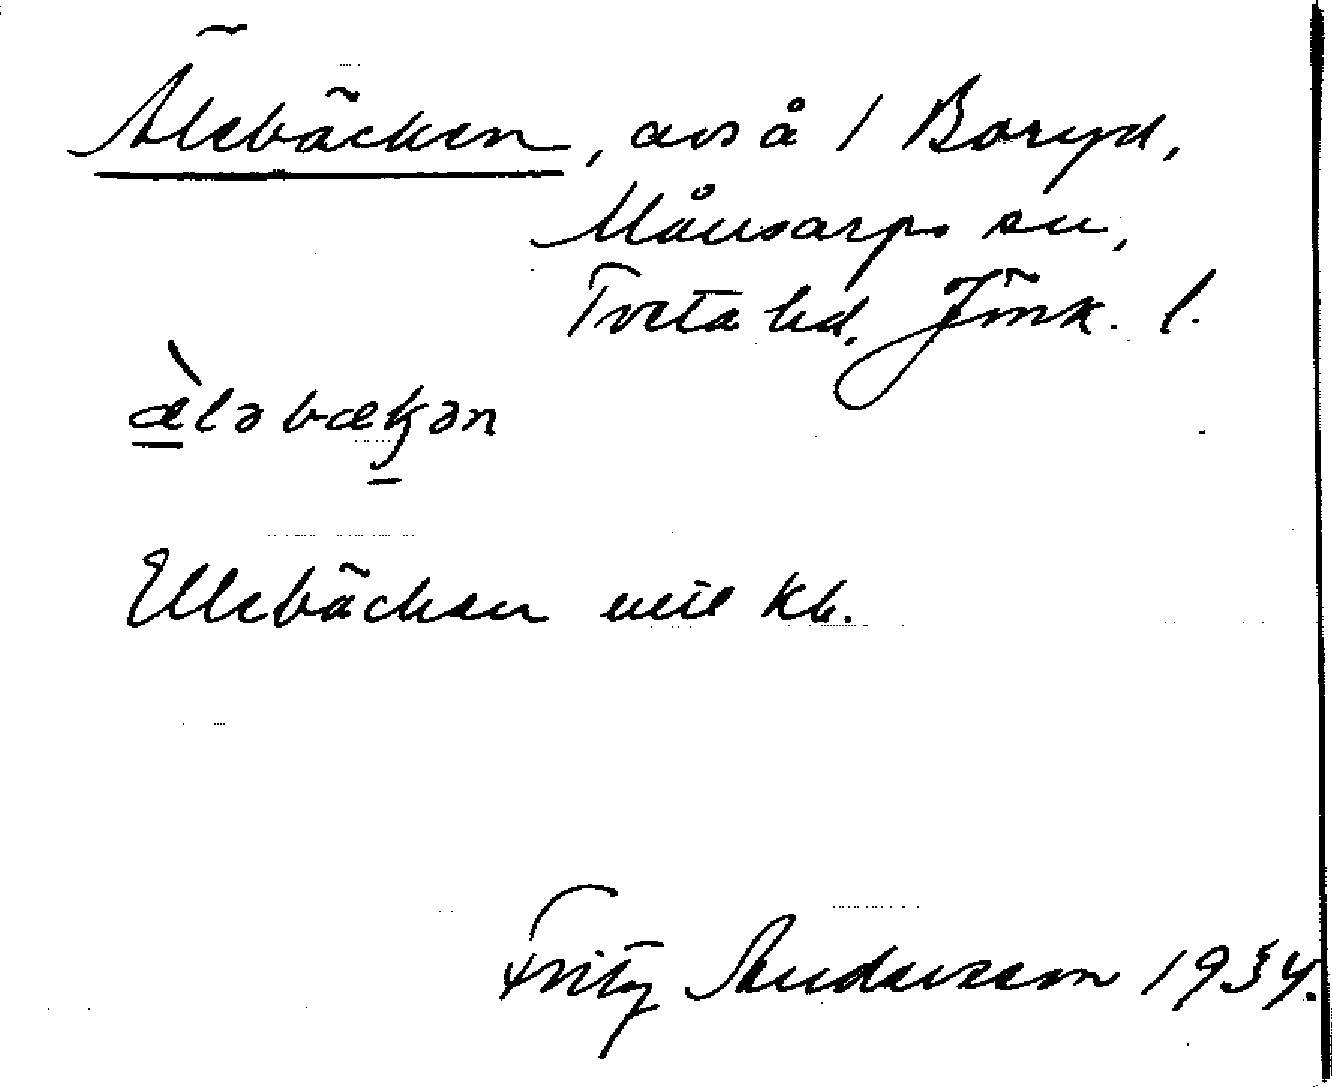 Älebäcken, avs å i Boryd,
Månsarps sn,
Tveta hd. Jönk. l.
æ̀ləbækən
Ellebäcken enl kb.
Fritz Andersson 1934.